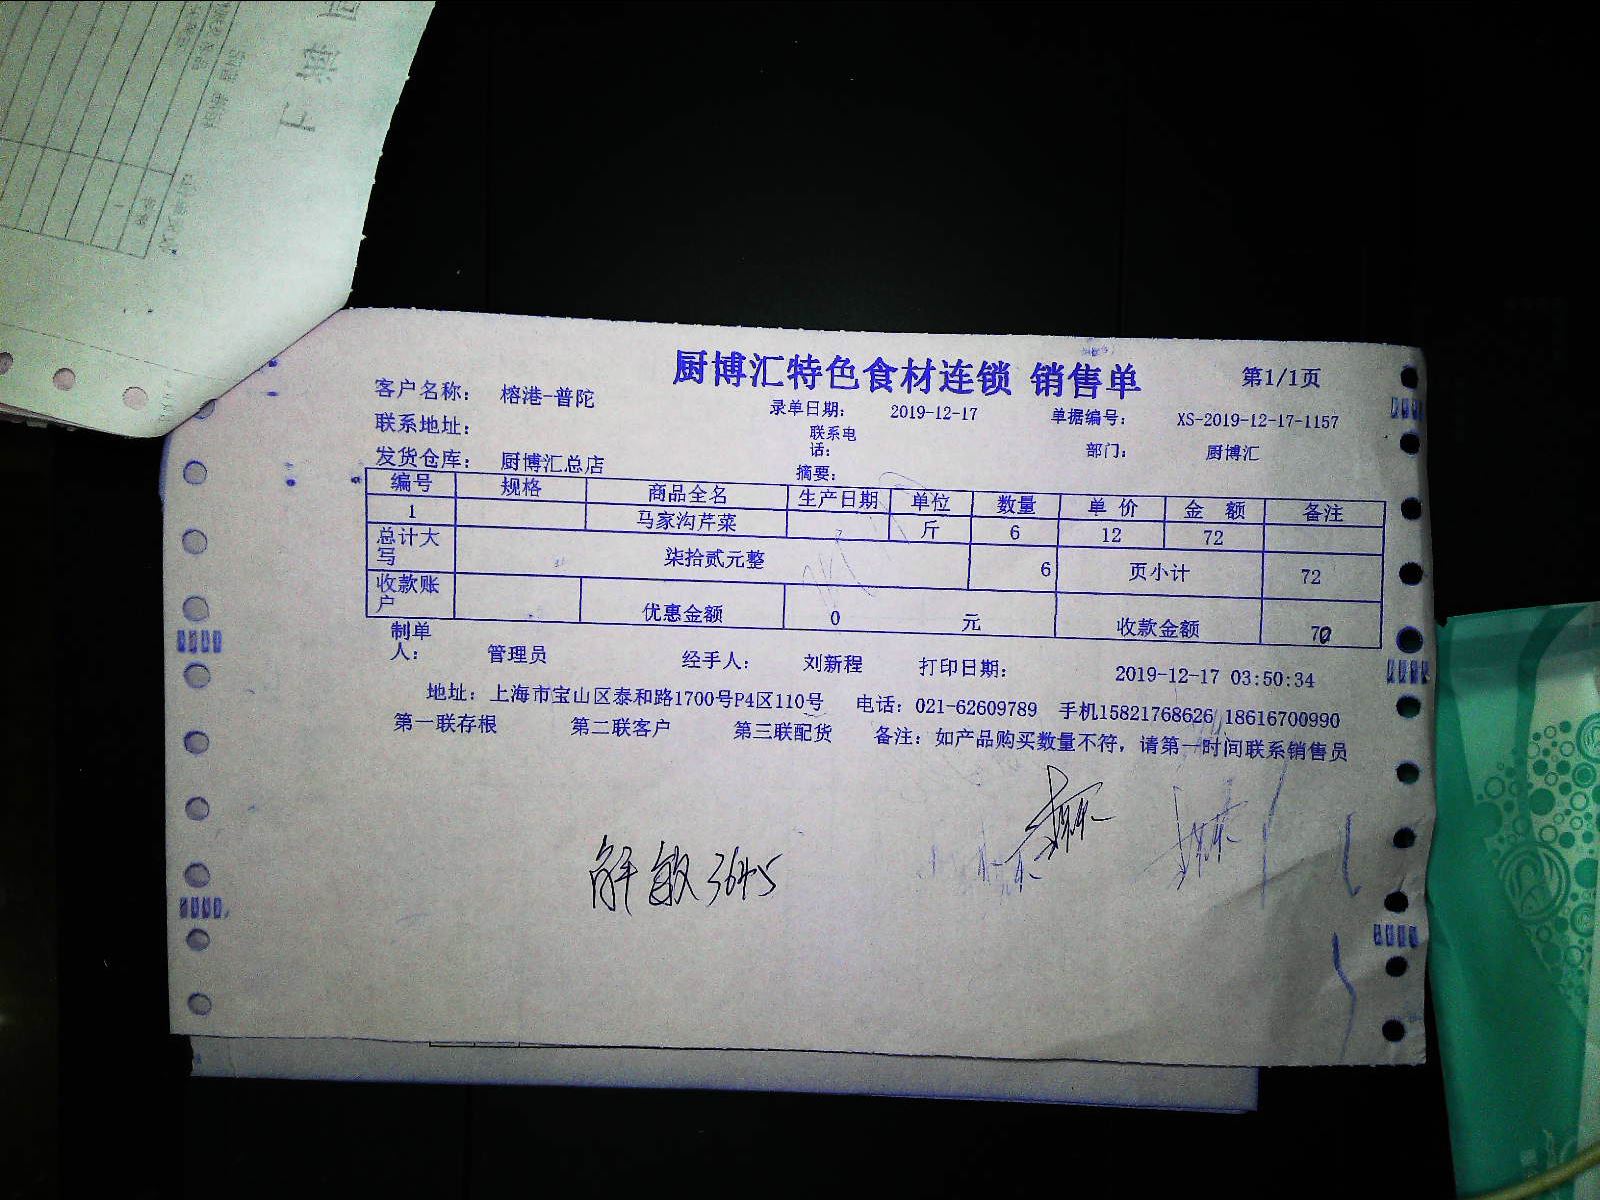 厨博汇特色食材连锁 销售单 第1/1页
客户名称： 榕港-普陀 录单日期： 2019-12-17 单据编号： XS-2019-12-17-1157
联系地址： 联系电话： 部门： 厨博汇
发货仓库： 厨博汇总店 摘要：
编号 规格 商品全名 生产日期 单位 数量 单 价 金 额 备注
1 马家沟芹菜 斤 6 12 72
总计大写 柒拾贰元整 6 页小计 72
收款账户 优惠金额 0 元 收款金额 70
制单人： 管理员 经手人： 刘新程 打印日期： 2019-12-17 03:50:34
地址：上海市宝山区泰和路1700号P4区110号 电话：021-62609789 手机15821768626 18616700990
第一联存根 第二联客户 第三联配货 备注：如产品购买数量不符，请第一时间联系销售员
解敏 3645